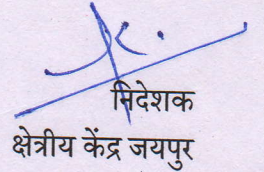 निदेशक
क्षेत्रीय केंद्र जयपुर